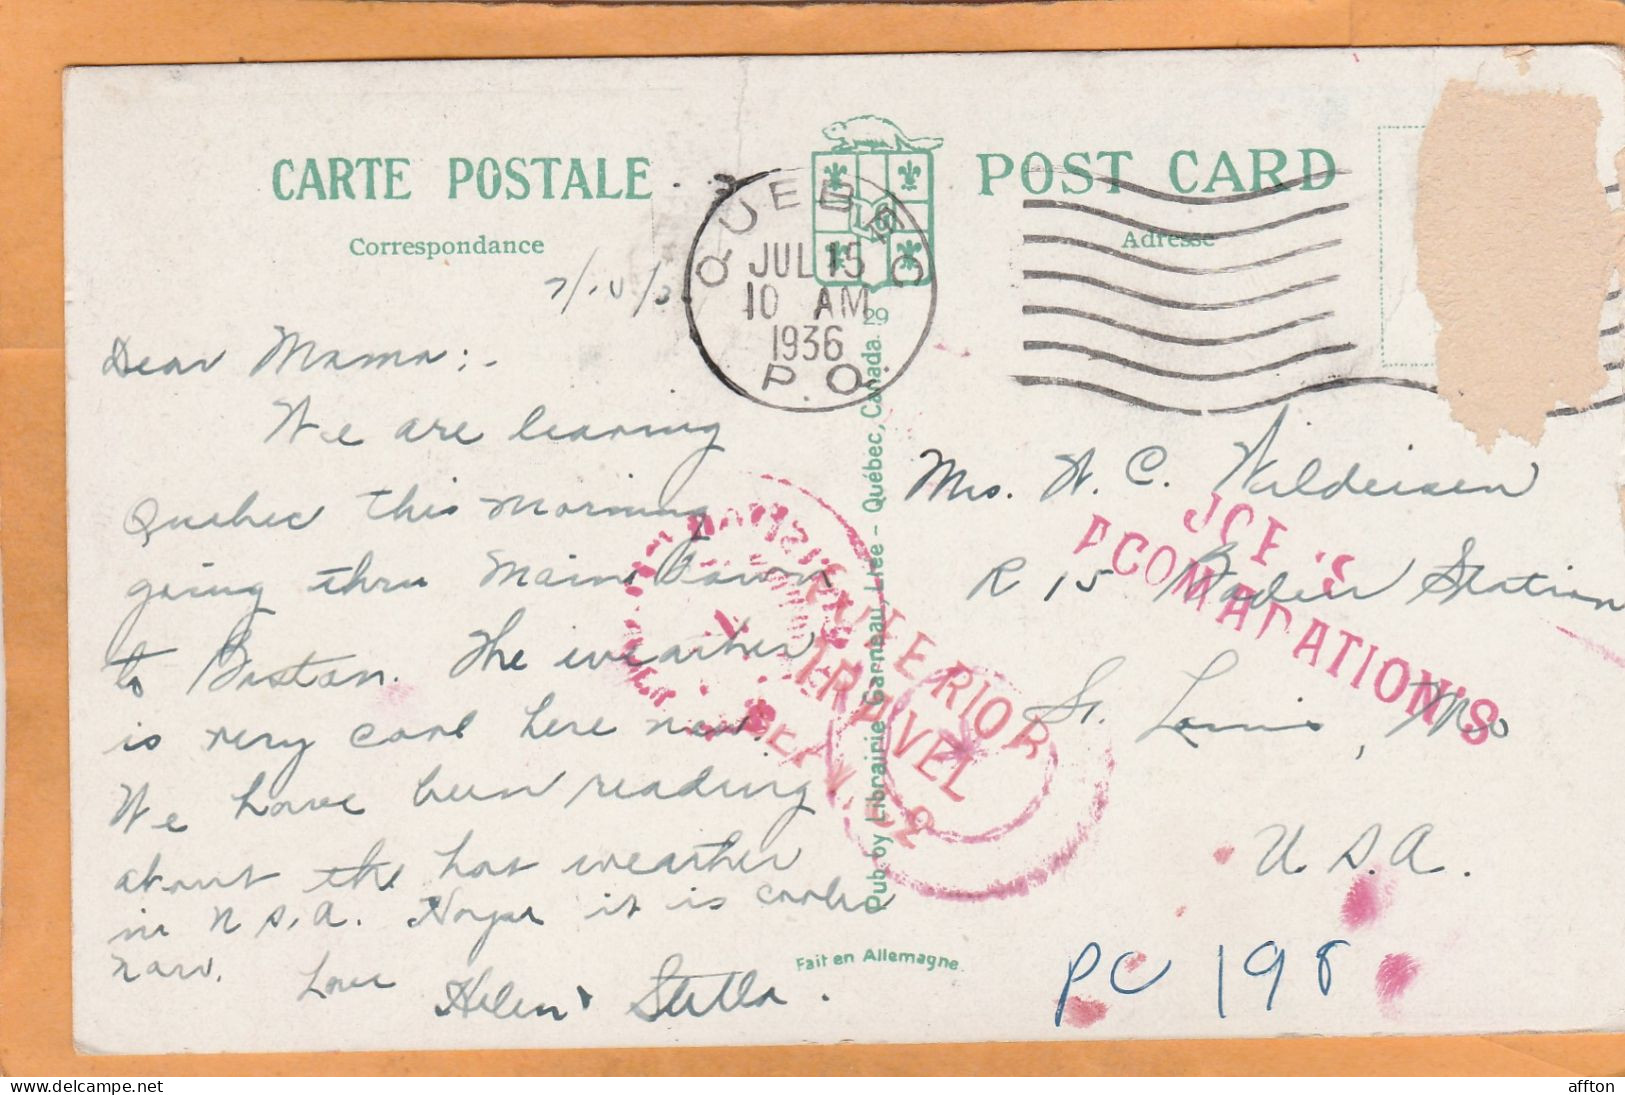 CARTE POSTALE
Correspondance
POST CARD
Adresse
QUEBEC
JUL 15
10 AM
1936
P.O.
29
Dear Mama:-
We are leaving
Quebec this morning
going thru Maine
to Boston. The weather
is very cool here now.
We have been reading
about the hot weather
in U.S.A. Hope it is cooler
now.
Love
Helen & Stella.
Pub by Librairie Garneau, Ltée - Québec, Canada.
Fait en Allemagne
Mrs. W. C. Wildeisen
R 15 Baden Station
St. Louis, Mo
U.S.A.
TRAVEL
PC 198
affton